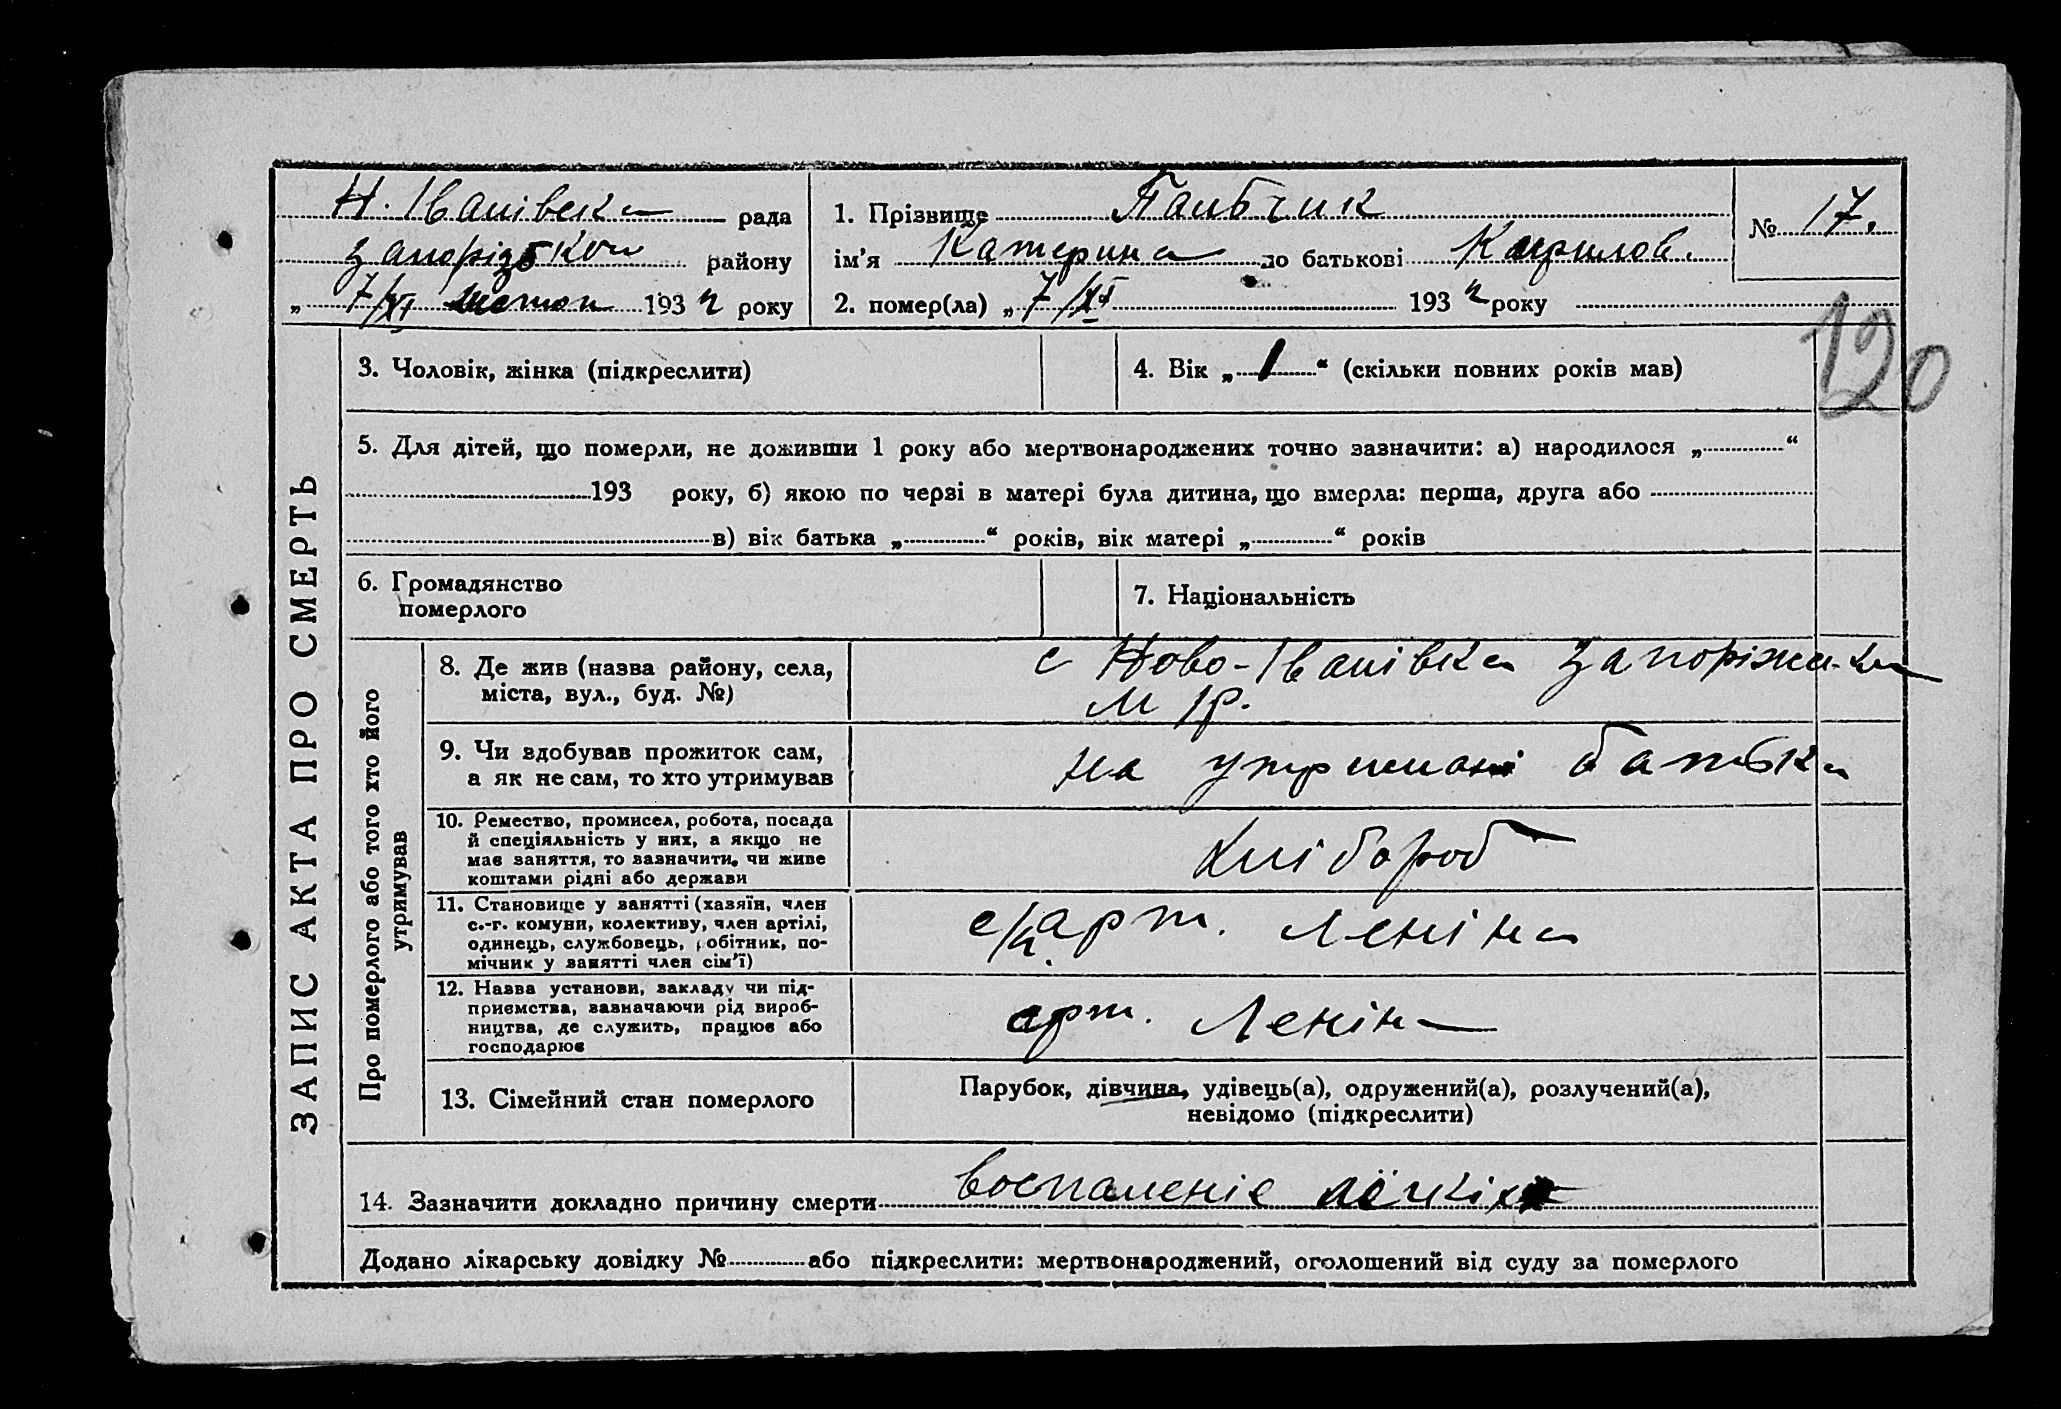 Н. Івапівська рада
запорізького району
„ 7/XI листоп 1932 року
1. Прізвище Пальчик
ім’я Катерина по батькові Кирилов.
2. помер(ла) „ 7/XI 1932 року
№ 17.
120
ЗАПИС АКТА ПРО СМЕРТЬ
3. Чоловік, жінка (підкреслити)
4. Вік „ 1 “ (скільки повних років мав)
5. Для дітей, що померли, не доживши 1 року або мертвонароджених точно зазначити: а) народилося „ “
193 року, б) якою по черзі в матері була дитина, що вмерла: перша, друга або
в) вік батька „ “ років, вік матері „ “ років
6. Громадянство
померлого
7. Національність
Про померлого або того хто його
утримував
8. Де жив (назва району, села,
міста, вул., буд. №)
с Ново-Іванівка Запоріжж
М/р.
9. Чи здобував прожиток сам,
а як не сам, то хто утримував
на утримані батька
10. Ремество, промисел, робота, посада
й спеціяльність у них, а якщо не
має заняття, то зазначити, чи живе
коштами рідні або держави
хлібороб
11. Становище у занятті (хазяїн, член
с.-г. комуни, колективу, член артілі,
одинець, службовець, робітник, по-
мічник у занятті член сім’ї)
арт. Леніна
12. Назва установи, закладу чи під-
приємства, зазначаючи рід вироб-
ництва, де служить, працює або
господарює
арт. Леніна
13. Сімейний стан померлого
Парубок, дівчина, удівець(а), одружений(а), розлучений(а),
невідомо (підкреслити)
14. Зазначити докладно причину смерти воспаленіе лёхкіх
Додано лікарську довідку № або підкреслити: мертвонароджений, оголошений від суду за померлого